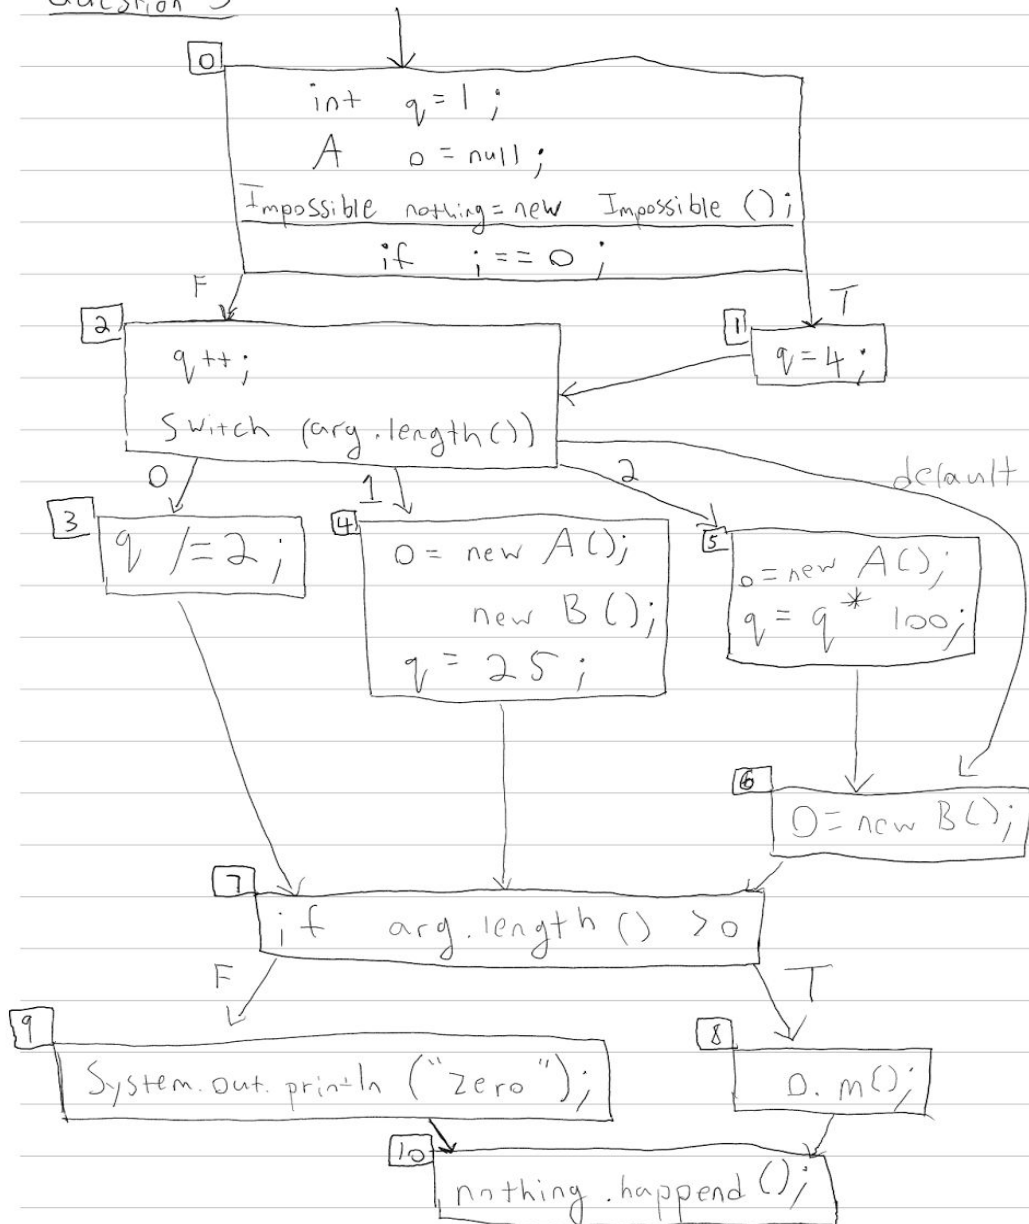 Question 3
0
int q = 1 ;
A o = null ;
Impossible nothing = new Impossible () ;
if i == 0 ;
F
T
2
q ++ ;
Switch (arg.length())
1
q = 4 ;
0
1
2
default
3
q /= 2 ;
4
o = new A();
new B ();
q = 25 ;
5
o = new A();
q = q * 100;
6
O = new B();
7
if arg.length () > 0
F
T
9
System.out.println ("zero");
8
O. m();
10
nothing .happend ();